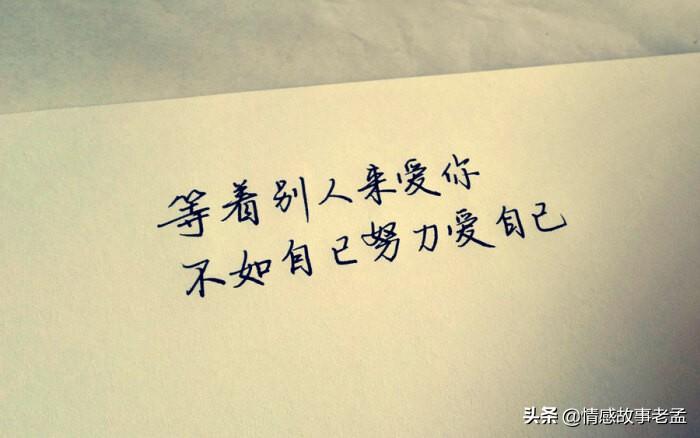 等着别人来爱你
不如自己努力爱自己
头条 @情感故事老孟